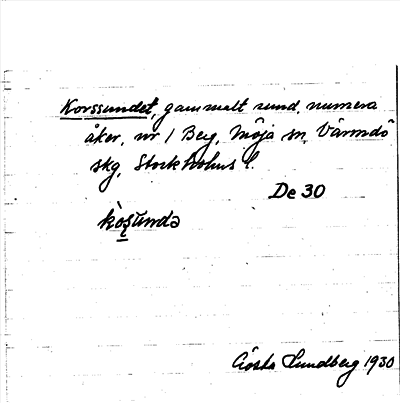 Korssundet, gammalt sund, numera
åker, nr 1 Berg, Möja sn, Värmdö
skg, Stockholms l.
De 30
Gösta Lundberg 1930